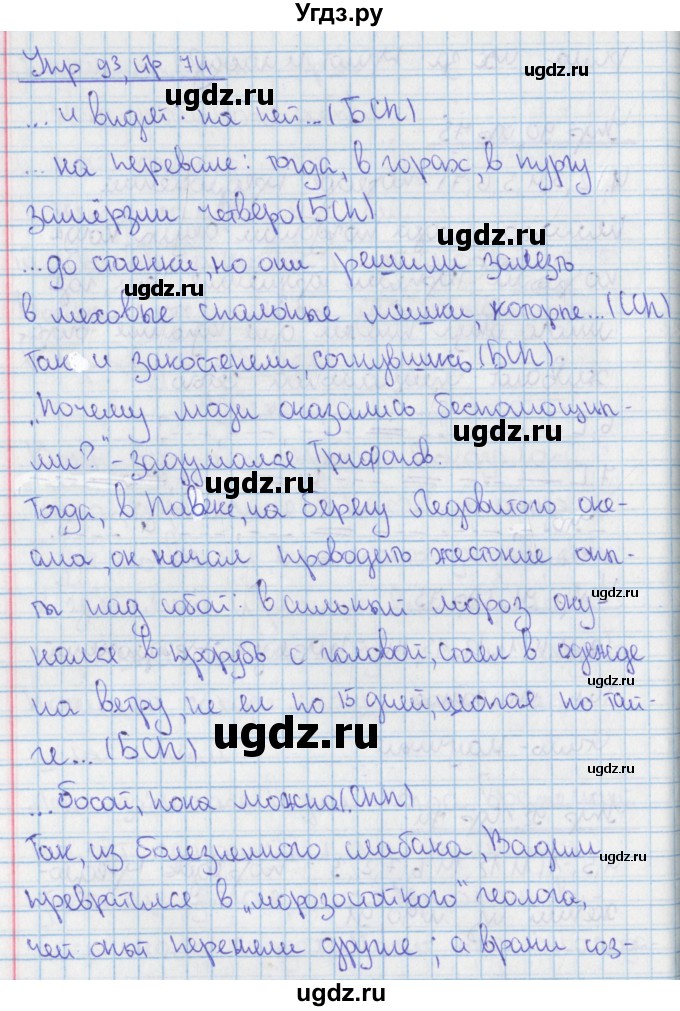 Угдз.ру
Упр 93, стр 74
ugdz.ru
... и видят: на ней... (БСП)
... на перевале: тогда, в горах, в пургу
замёрзли четверо (БСП)
ugdz.ru
... до стоенки, но они решили залезть
ugdz.ru
в меховые спальные мешки, которые... (СП)
Так и закостенели, согнувшись (БСП).
ugdz.ru
„Почему люди оказались беспомощны-
ми?" - задумался Трифонов.
ugdz.ru
Тогда, в Певеке, на берегу Ледовитого оке-
ана, он начал проводить жестокие опы-
ugdz.ru
ты над собой: в сильный мороз оку-
нался в прорубь с головой, стоял в одежде
ugdz.ru
на ветру, не ел по 15 дней, шопая по тай-
ugdz.ru
ге... (БСП)
ugdz.ru
... босой, пока можна (СПП)
Так, из болезненного слабака, Вадим
ugdz.ru
превратился в „морозостойкого" геолога,
чей опыт переняли другие; а врачи соз-
ugdz.ru